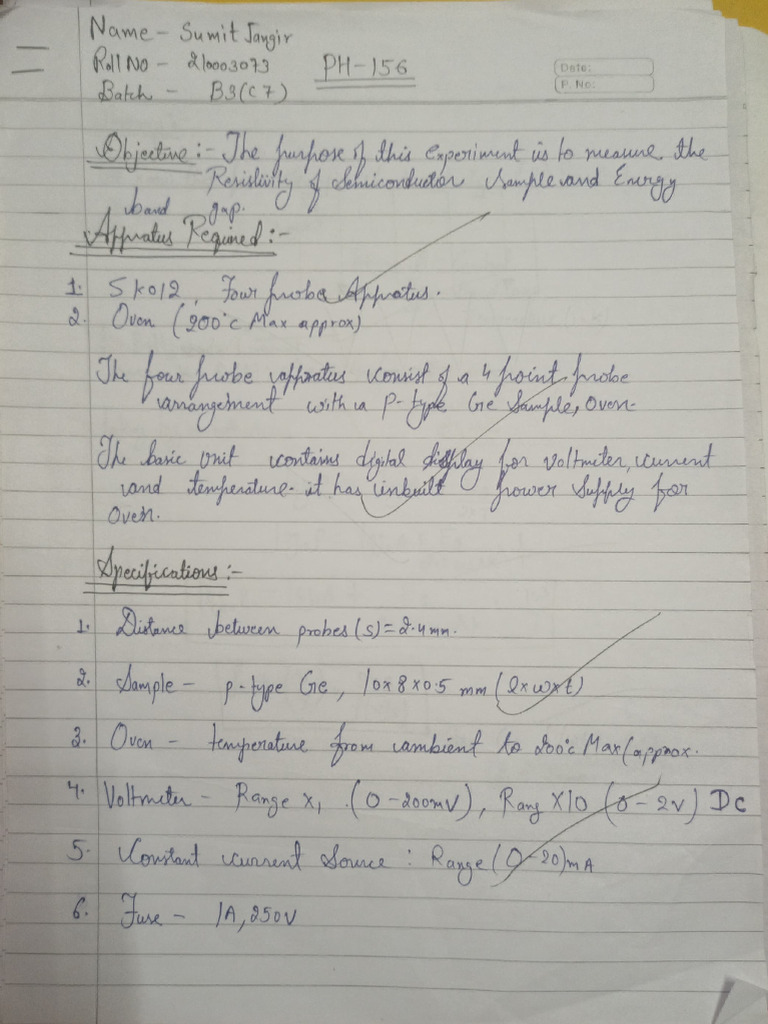 Name - Sumit Jangir
Roll No - 210003073
PH-156
Date:
Batch - B3(C7)
P. No:
Objective :- The purpose of this experiment is to measure the
Resistivity of Semiconductor sample and Energy
band gap.
Appratus Required :-
1. SK012, Four probe Appratus.
2. Oven (200°c Max approx)
The four probe appratus consist of a 4 point probe
arrangement with a P-type Ge Sample, Oven.
The basic unit contains digital display for voltmeter, current
and temperature. it has inbuilt power supply for
Oven.
Specifications :-
1. Distance between probes (s) = 2.4mm.
2. Sample - p-type Ge, 10x8x0.5 mm (lxwxt)
3. Oven - temperature from ambient to 200°c Max (approx.
4. Voltmeter - Range X1 . (0-200mV), Rang X10 (0-2v) DC
5. Constant current Source : Range (0-20)mA
6. Fuse - 1A, 250V